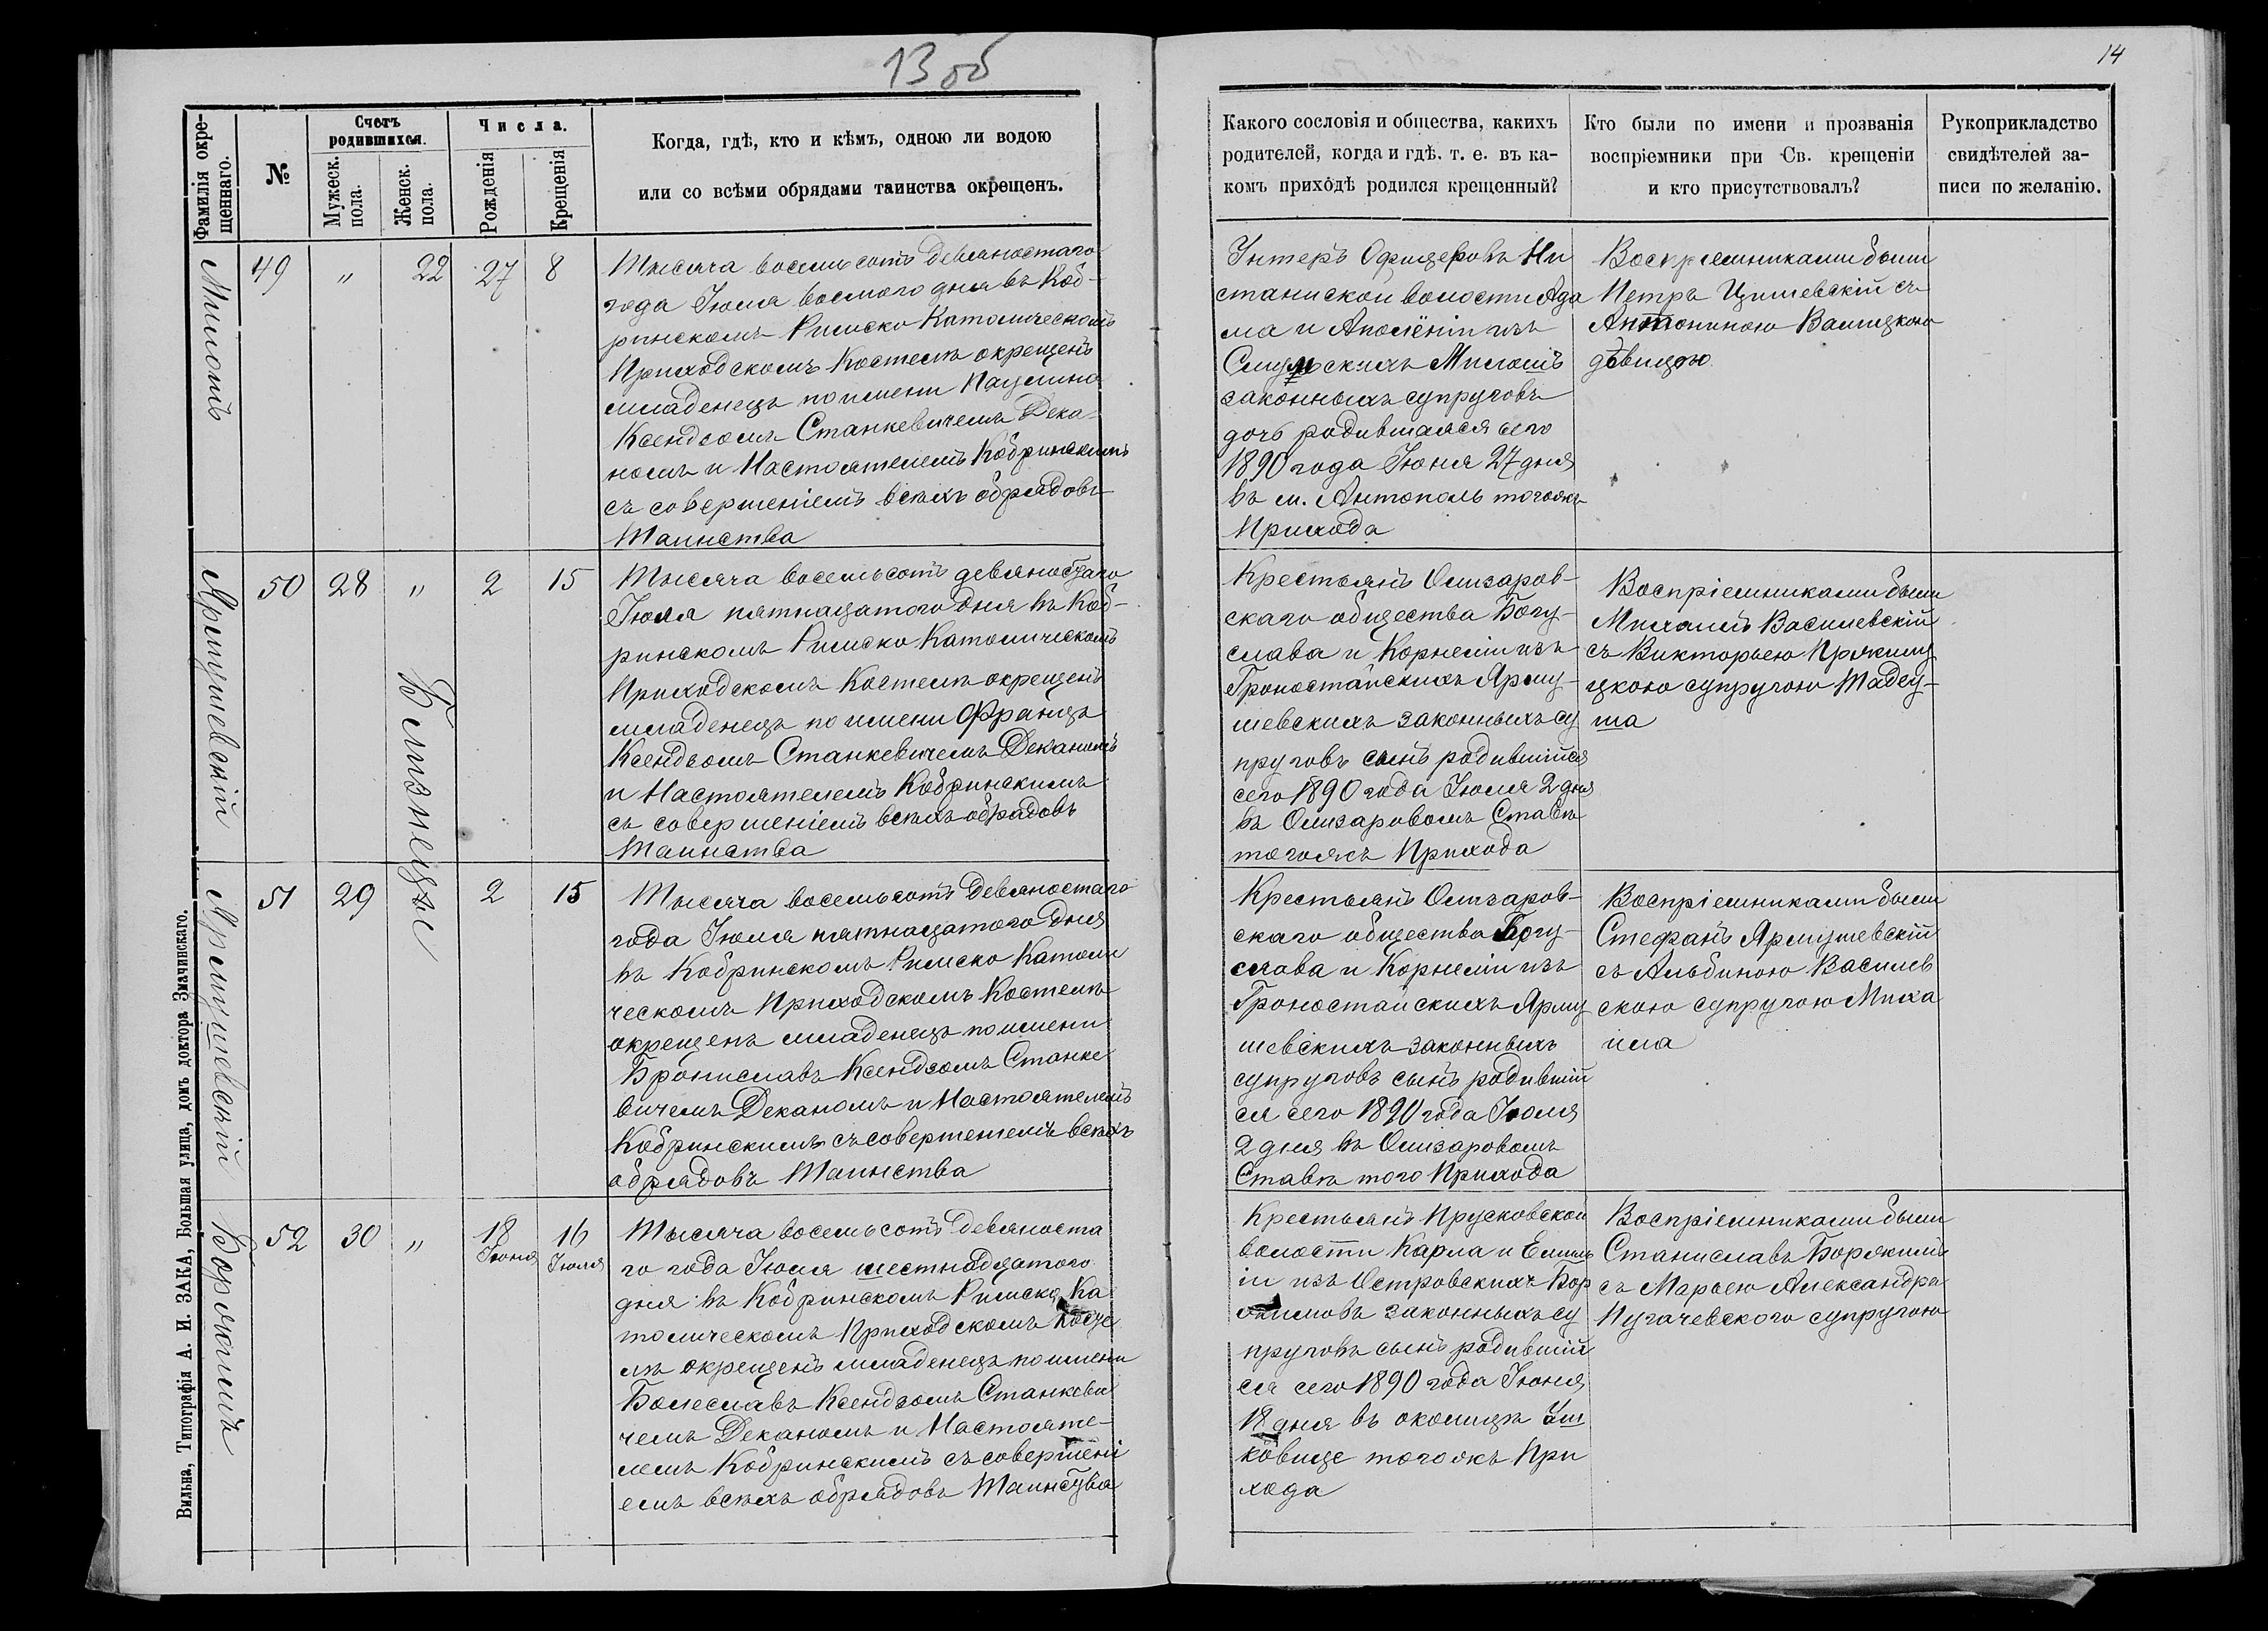 13 об
14
Фамилія окре-
щеннаго.
№
Счетъ
родившихся.
Мужеск.
пола.
Женск.
пола.
Числа.
Рожденія
Крещенія
Когда, гдѣ, кто и кѣмъ, одною ли водою
или со всѣми обрядами таинства окрещенъ.
Какого сословія и общества, какихъ
родителей, когда и гдѣ. т. е. въ ка-
комъ приходѣ родился крещенный?
Кто были по имени и прозванія
воспріемники при Св. крещеніи
и кто присутствовалъ?
Рукоприкладство
свидѣтелей за-
писи по желанію.
Милошъ
49 " 22 27 8
Тысяча восемьсотъ девяностаго
года Іюля восьмого дня въ Коб-
ринскомъ Римско Католическомъ
Приходскомъ Костелѣ окрещенъ
младенецъ по имени Паулина
Ксендзомъ Станкевичемъ Дека-
номъ и Настоятелемъ Кобринскимъ
съ совершеніемъ всѣхъ обрядовъ
Таинства
Унтеръ Офицеровъ Ни
станиской волости Ада
ма и Аполёніи изъ
Милошъ
законныхъ супруговъ
дочь родившаяся сего
1890 года Іюня 27 дня
въ м. Антополь тогожъ
Прихода
Воспріемниками были
Петръ Цишевскій съ
Антониною Валицкою
дѣвицою
Ярмушевскій
50 28 " 2 15
Тысяча восемьсотъ девяностаго
Іюля пятнацатого дня въ Коб-
ринскомъ Римско Католическомъ
Приходскомъ Костелѣ окрещенъ
младенецъ по имени Францъ
Ксендзомъ Станкевичемъ Деканомъ
и Настоятелемъ Кобринскимъ
съ совершеніемъ всѣхъ обрадовъ
Таинства
Крестьянъ Олизаров-
скаго общества Богу-
слава и Корнеліи изъ
Гроностайскихъ Ярму-
шевскихъ законныхъ су
пруговъ сынъ родившійся
сего 1890 года Іюля 2 дня
въ Олизаровомъ Ставѣ
тогожъ Прихода
Воспріемниками были
Михаилъ Василевскій
съ Викторьею
цкою супругою Тадеу-
ша
Близнецы
Ярмушевскій
51 29 2 15
Тысяча восемьсотъ девяностаго
года Іюля пятнацатого дня
въ Кобринскомъ Римско Католи
ческомъ Приходскомъ Костелѣ
окрещенъ младенецъ по имени
Брониславъ Ксендзомъ Станке
вичемъ Деканомъ и Настоятелемъ
Кобринскимъ съ совершеніемъ всѣхъ
обрядовъ Таинства
Крестьянъ Олизаров-
скаго общества Богу-
слава и Корнеліи изъ
Гроностайскихъ Ярму
шевскихъ законныхъ
супруговъ сынъ родившій
ся сего 1890 года Іюля
2 дня въ Олизаровомъ
Ставѣ того Прихода
Воспріемниками были
Стефанъ Ярмушевскій
съ Альбиною Василев
скою супругою Миха
ила
Борякимъ
52 30 " 18 Іюня 16 Іюля
Тысяча восемьсотъ девяноста
го года Іюля шестнадцатого
дня въ Кобринскомъ Римско Ка
толическомъ Приходскомъ Косте
лѣ окрещенъ младенецъ по имени
Болеславъ Ксендзомъ Станкеви
чемъ Деканомъ и Настояте-
лемъ Кобринскимъ съ совершені
емъ всѣхъ обрядовъ Таинства
Крестьянъ Прусковской
волости Карла и Емил
іи изъ Островскихъ Бор
якимовъ законныхъ су
пруговъ сынъ родивший
ся сего 1890 года Іюня
18 дня въ околицѣ
ковице тогожъ При
хода
Воспріемниками были
Станиславъ Борякимъ
съ Марьею Александра
Пугачевского супругою
Вильна, Типографія А. И. ЗАКА, Большая улица, домъ доктора Змачинскаго.